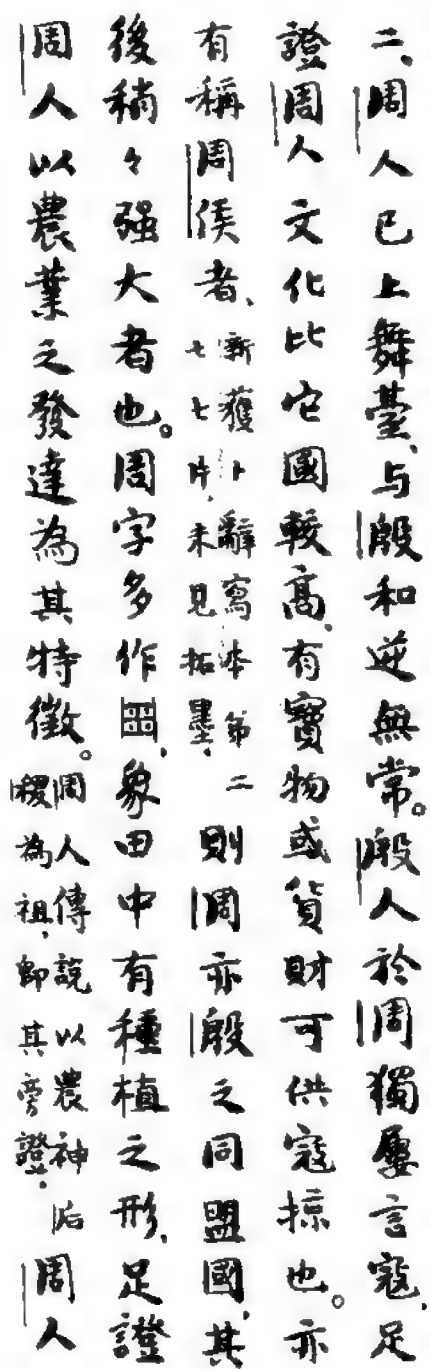 二、周人已上舞臺、与殷和逆無常。殷人於周獨屢言寇、足
證周人文化比它國較高、有寶物或貨財可供寇掠也。亦
有稱周侯者、新獲卜辭寫本第二七七片、未見拓墨、則周亦殷之同盟國、其
後稍々强大者也。周字多作𤰇、象田中有種植之形、足證
周人以農業之發達為其特徵。周人傳說以農神后稷為祖、即其旁證。周人